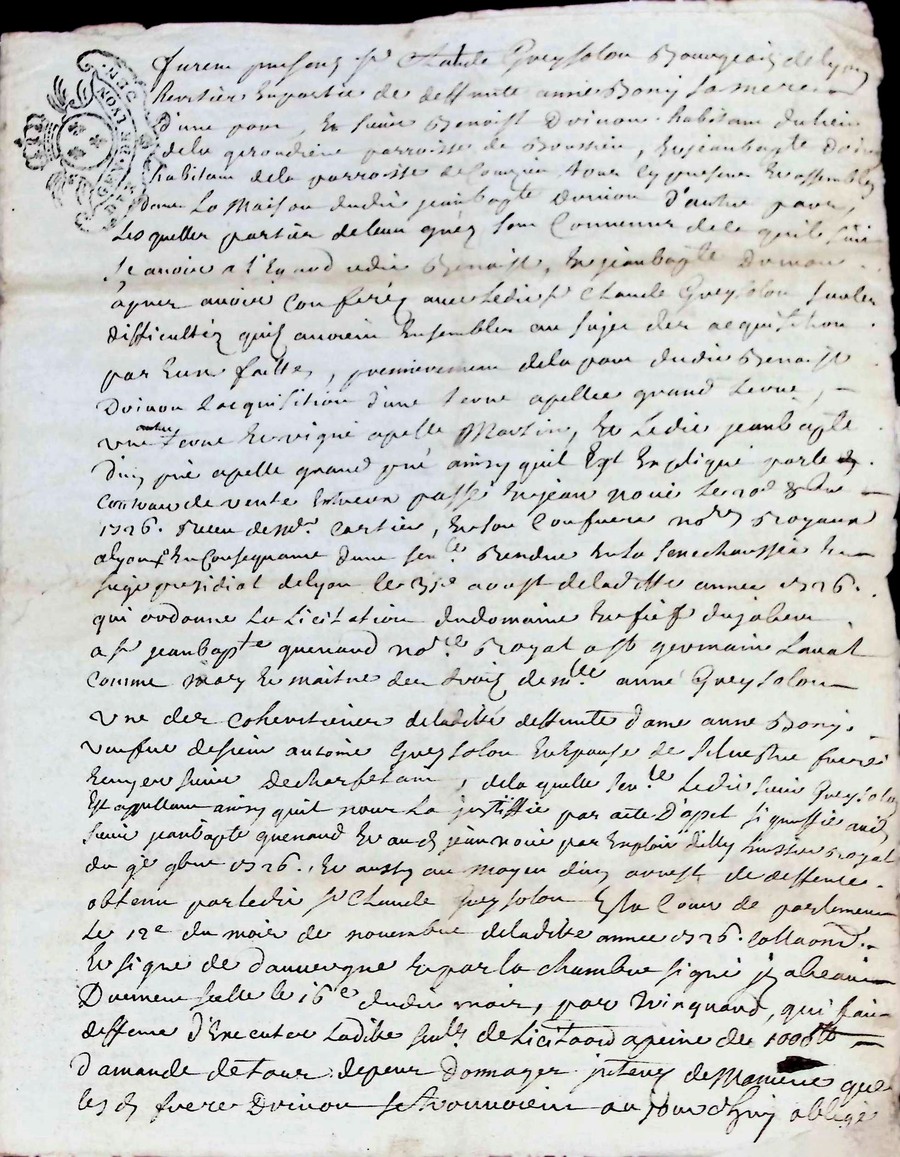 GEN. DE LYON
furent presens sr Claude Greysolon Bourgeois de lyon
heritier en partie de deffunte anne Bony sa mere
d'une part, Et sieur Benoist Doinon habitant du lieu
de la girondiere parroisse de, Et jean bapte Doinon
habitant de la parroisse de tous cy presens Et assembles
dans La Maison dudit jean bapte Doinon d'autre part,
Lesquelles parties de leur grez sont Convenues de ce qui suit
sçavoir a l'Egard dudit Benoist, Et jean bapte Doinon
apres avoir Conferéz avec Ledit sr Claude Greysolon sur les
difficultéz quils avoient Ensembles au sujet des acquisition
par Eux faittes, premierement de la part dudit Benoist
Doinon Lacquisition d'une terre apellee grand terre,
une autre terre Et vigne apellé Martin, Et Ledit jean bapte
d'un pré apellé grand pré ainsy quil Est Expliqué par le
Contract de vente En leur passé Et jean noué Le 20e 8bre
1726. receu de mre Cartier, Et son Confrere nores Royaux
a lyon Et En Consequence d'une sence Rendue En la senechaussée Et
siege presidial de lyon le 31e aoust de laditte année 1726.
qui ordonne La Licitation du domaine Et fief
a sr jean bapte guenand nore Royal a sr germain Laval
Comme mary Et maitre des droits de melle anne Greysolon
une des Coheritieres de laditte deffunte dame anne Bony
veufve de sieur antoine Greysolon Et Epouse de silvestre
Ecuyer sieur, de la quelle sence Ledit sieur Greysolon
Est appellant ainsy quil nous La justiffié par acte D'apel signiffié audit
sieur jean bapte guenand Et aud jean noué par Exploit huissier Royal
du 9e 9bre 1726. Et aussy au moyen d'un arrest de deffences
obtenu par ledit sr Claude Greysolon En la Cour de parlement
Le 12e du mois de novembre de laditte année 1726. Collaonné
Et signé de dauvergne Et par la chambre signé jzabeau
Duement scellé le 16e dudit mois, par, qui fait
deffence d'Executer Laditte sentce de Licitaon a peine de 1000lt
d'amande de tous depens Domages interets de Maniere que
les d freres Doinon se trouvoient au jourd'huy obligé